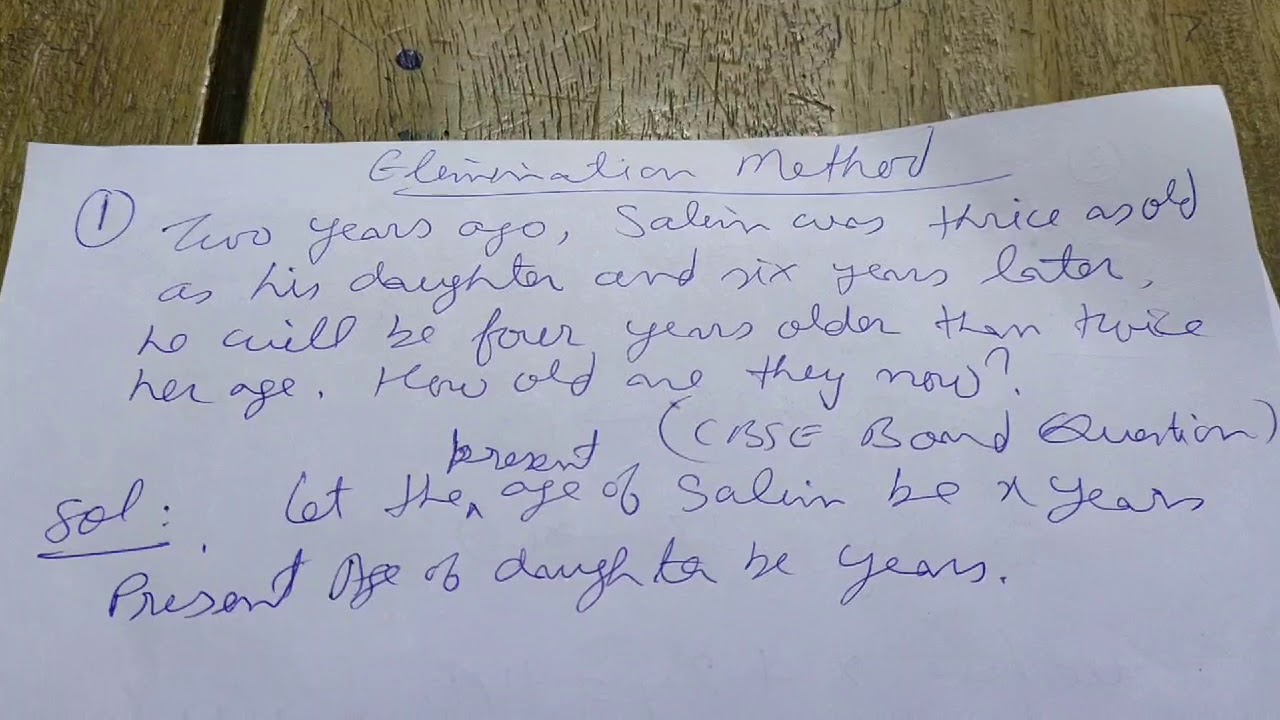 Elimination Method
① Two years ago, Salim was thrice as old
as his daughter and six years later,
he will be four years older than twice
her age. How old are they now?
(CBSE Board Question)
present
Sol: Let the ^ age of Salim be x years
Present Age of daughter be years.